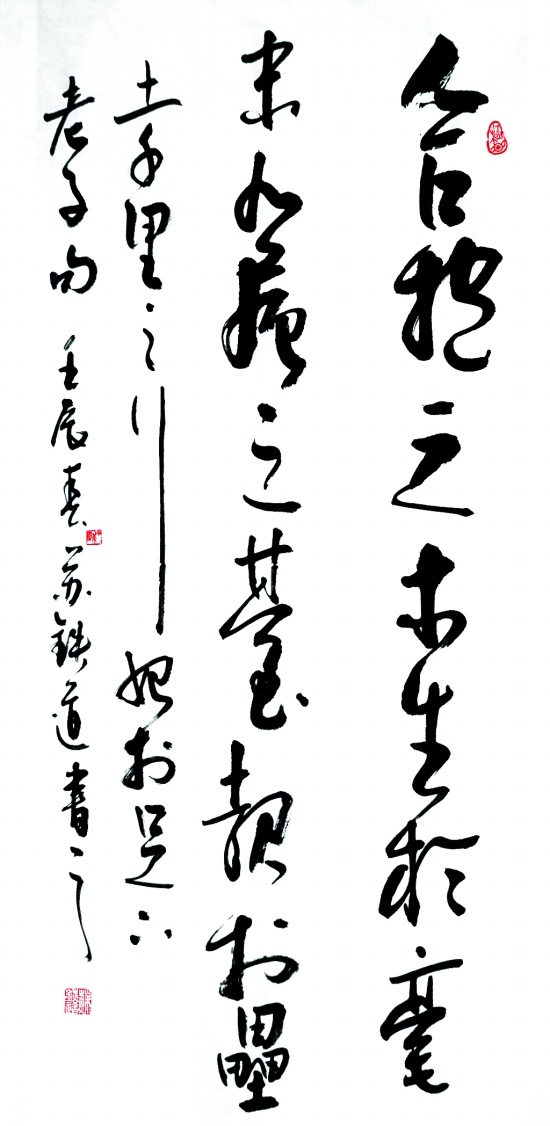 合抱之木生於毫
末九層之臺起於壘
土千里之行始於足下
老子句 壬辰春 苏鉄道書之